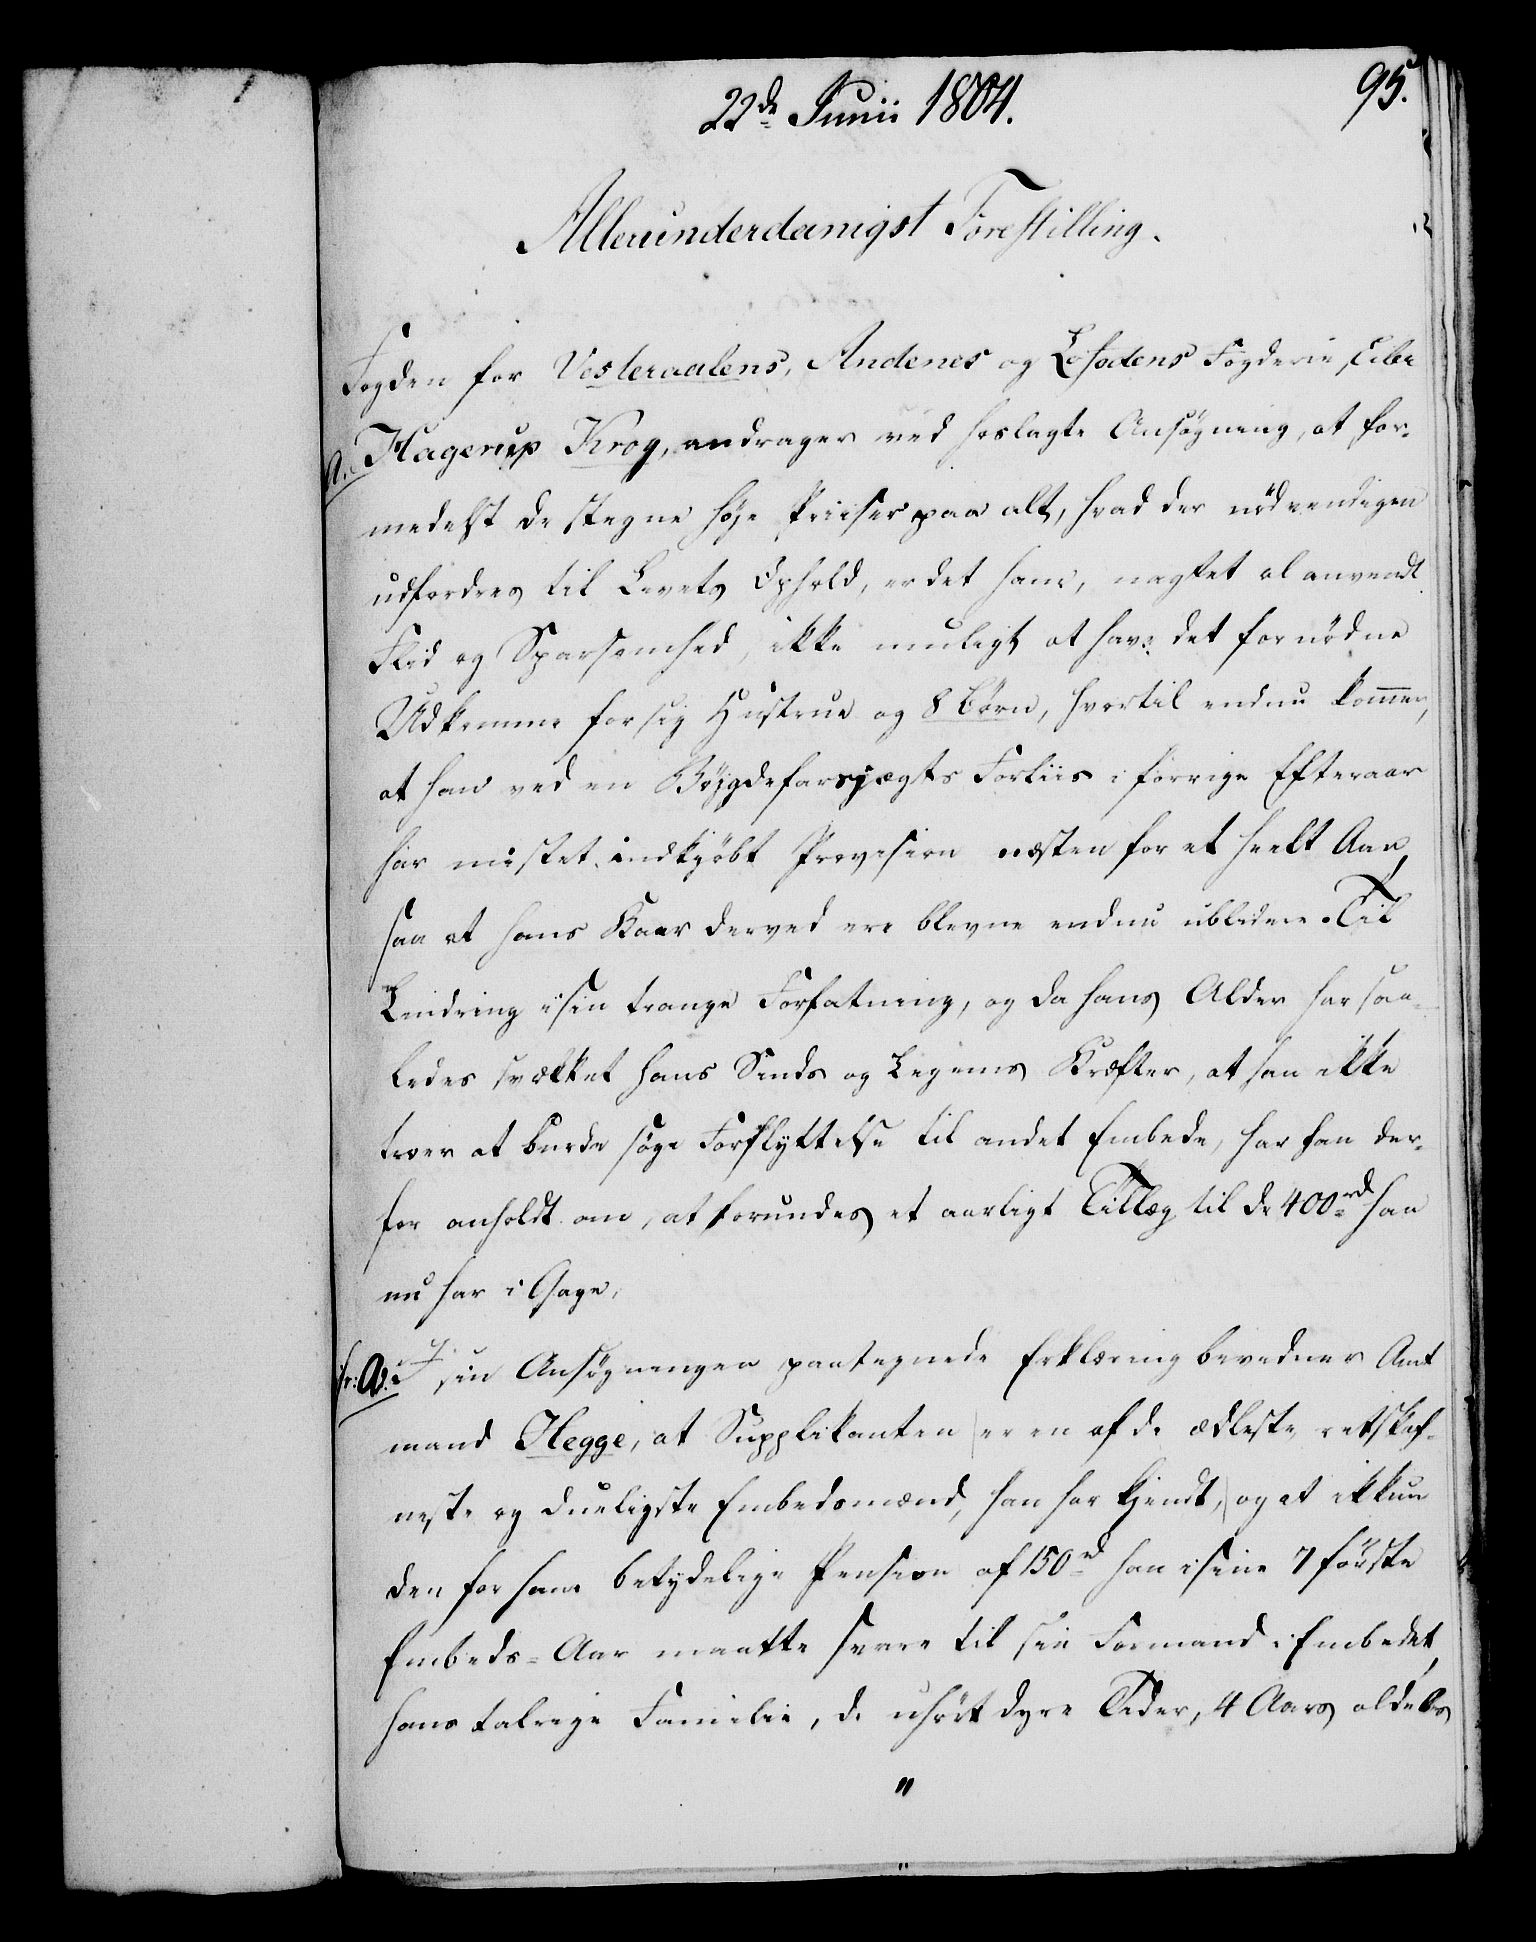 22de Junii 1804.
95.
Allerunderdanigst Forestilling.
Fogden for Vesteraalens, Andenes og Lofodens Fogderie, Eiler
A. Hagerup Krog, andrager ved hoslagte Ansøgning, at for-
medelst de stegne høje Priiser paa alt, hvad der nödvendigen
udfordres til Livets Ophold, er det ham, uagtet al anvendt
Flid og Sparsomhed, ikke muligt at have det fornödne
Udkomme for sig Hustrue og 8 Börn, hvortil endnu kommer,
at han ved en Bÿgdefarsjægts Forliis i forrige Efteraar
har mistet indkjöbt Provision næsten for et heelt Aar,
saa at hans Kaar derved ere blevne endnu ublidere. Til
Lindring i sin trange Forfatning, og da hans Alder har saa-
ledes svækket hans Sinds og Legems Kræfter, at han ikke
troer at burde søge Forflÿttelse til andet Embede, har han der-
for anholdt om, at forundes et aarligt Tillæg til de 400rd han
nu har i Gage.
A. I sin Ansøgningen paategnede Erklæring bevidner Amt
mand Hegge, at Supplikanten er en af de ædleste retskaf-
neste og dueligste Embedsmænd, han har kjendt, og at ikkun
den for ham betydelige Pension af 150rd han i sine 7 förste
Embeds-Aar maatte svare til sin Formand i Embedet,
hans talrige Familie, de uhørt dyre Tider, 4 Aars aldeles
"